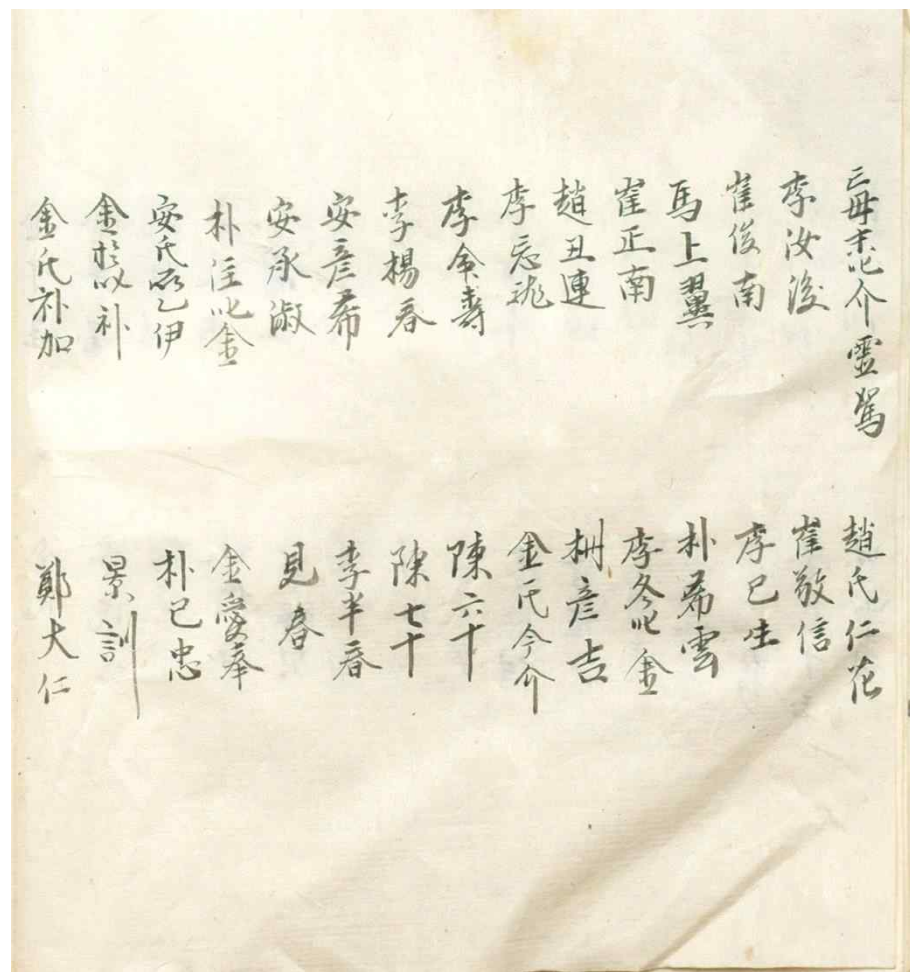 亡母末叱介靈駕
李汝浚
崔俊南
馬上翼
崔正南
趙丑連
李忘
李命壽
李楊春
安彦希
安承淑
朴注叱金
安氏所乙伊
金於以补
金氏补加
趙氏仁花
崔敬信
李巳生
朴希雲
李冬叱金
彦吉
金氏今介
陳六十
陳七十
李半春
見春
金愛奉
朴巳忠
景訓
鄭大仁